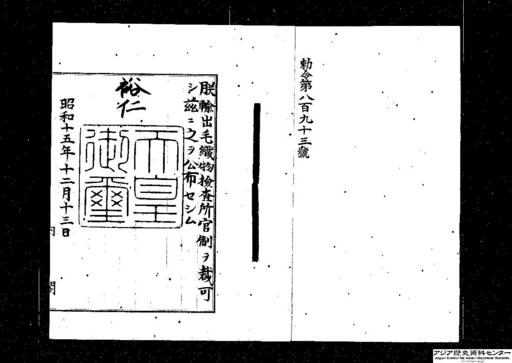 勅令第八百九十三號
朕輸出毛織物檢査所官制ヲ裁可
シ茲ニ之ヲ公布セシム
裕仁
天皇御璽
昭和十五年十二月十三日
内閣
アジア歴史資料センター
Japan Center for Asian Historical Records